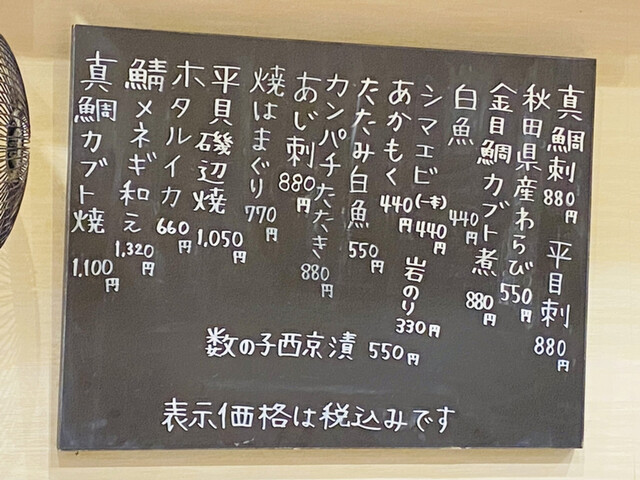 真鯛刺 880円
平目刺 880円
秋田県産わらび 550円
金目鯛カブト煮 880円
白魚 440円
シマエビ(一本) 440円
岩のり 330円
あかもく 440円
たたみ白魚 550円
カンパチたたき 880円
あじ刺 880円
焼はまぐり 770円
平貝磯辺焼 1,050円
ホタルイカ 660円
鯖メネギ和え 1,320円
真鯛カブト焼 1,100円
数の子西京漬 550円
表示価格は税込みです